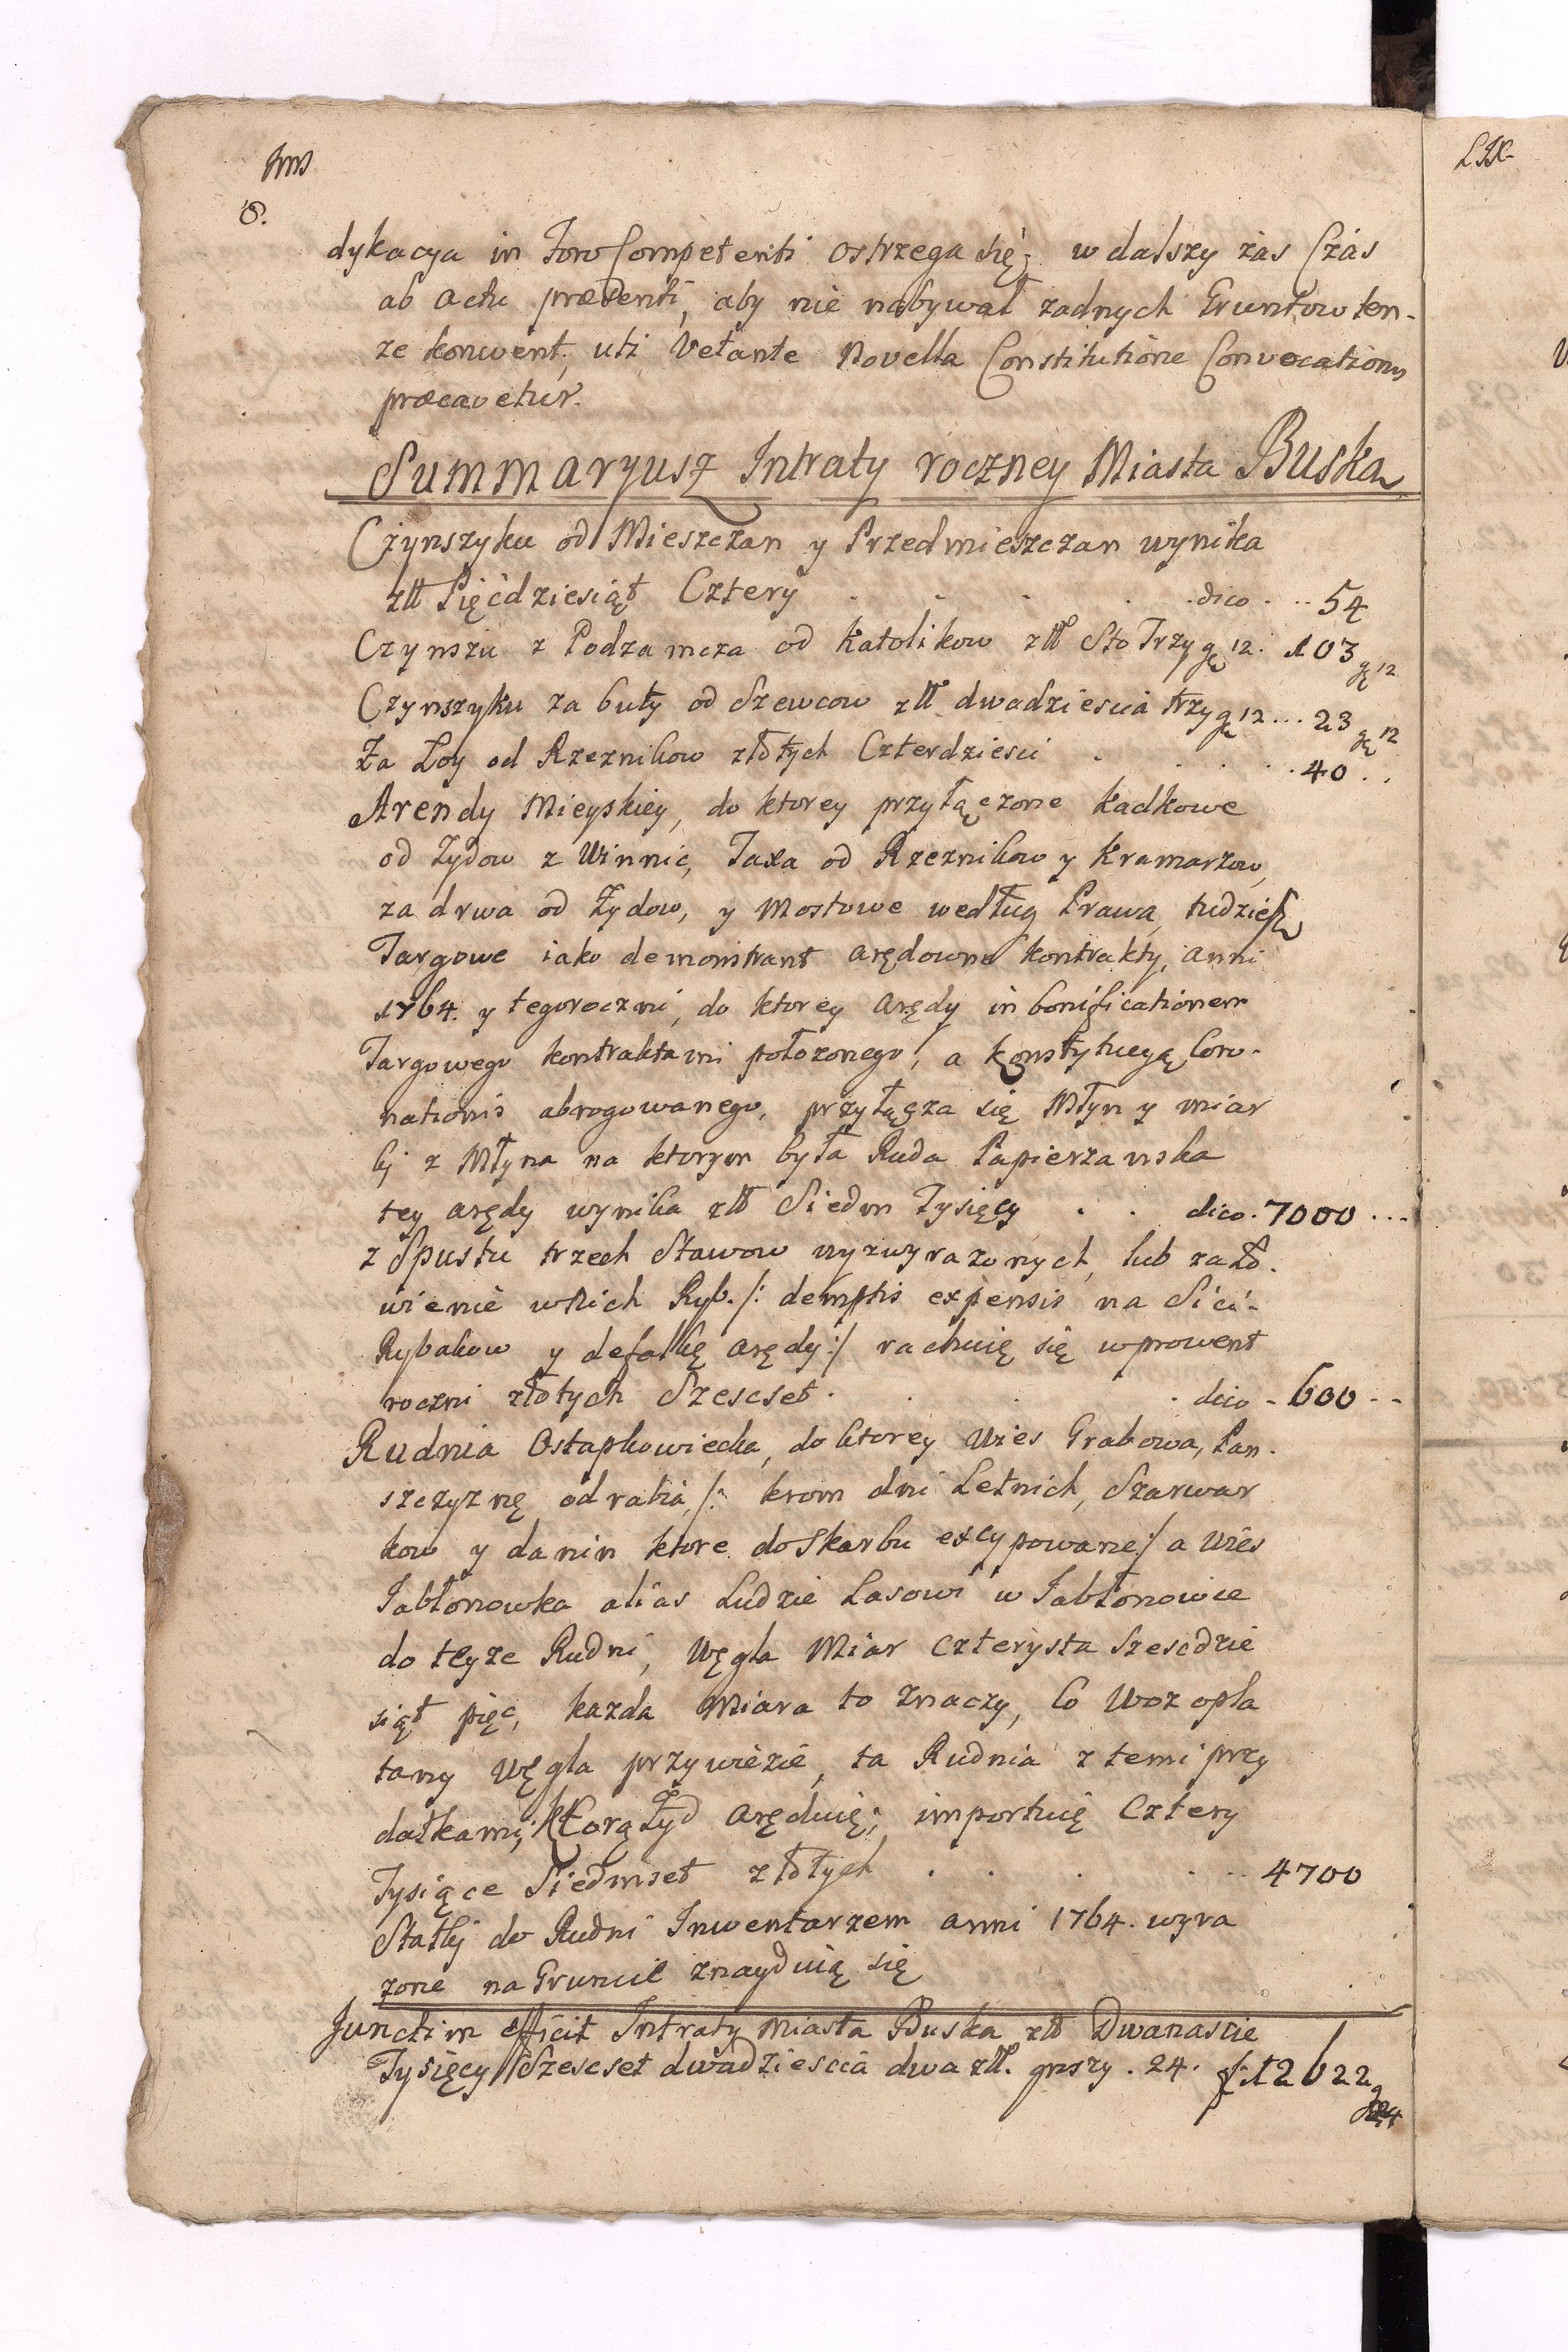 8.
dykacya in Foro Competenti ostrzega się; w dalszy zas Czas
ab actu præsenti, aby nie nabywał zadnych Gruntow ten-
ze konwent, uti Vetante Novella Constitutione Convocationis
præcavetur.
Summaryusz Intraty roczney Miasta Buska
Czynszyku od Mieszczan y Przedmieszczan wynika
złł Pięćdziesiąt Cztery . . . . dico . . . 54
Czynszu z Podzamcza od Katolikow złł Sto Trzy gr 12. 103 gr 12
Czynszyku za buty od Szewcow złł dwadziescia trzy gr 12 . . . 23 gr 12
Za Loy od Rzeznikow złotych Czterdziesci . . . . 40 . .
Arendy Mieyskiey, do ktorey przyłączone Kadkowe
od Zydow z Winnic, Taxa od Rzeznikow y Kramarzow,
za drwa od Zydow, y Mostowe według Prawa, tudziesz
Targowe iako demonstrant arędowne kontrakty, anni
1764. y tegoroczni, do ktorey arędy in bonificationem
Targowego kontraktami połozonego, a konstytucyą Coro-
nationis abrogowanego, przyłącza się Młyn y miar
ki z Młyna na ktorym była Ruda Papierzanska
tey arędy wynika złł Siedm Tysięcy . . dico . 7000 . . .
z Spustu trzech Stawow wyzwyrazonych, lub zało-
wienie wnich Ryb. /: demptis expensis na Sici-
Rybakow y defalkę arędy :/ rachuię się wprowent
roczni złotych Szescset . . . . dico - 600 - -
Rudnia Ostapkowiecka, do ktorey Wies Grabowa, Pan-
szczyznę odrabia, /: krom dni Letnich, Szarwar
kow y danin ktore do Skarbu excypowane :/ a Wies
Jabłonowka alias Ludzie Lasowi w Jabłonowce
do teyze Rudni, Węgla Miar Czterysta Szescdzie
siąt pięc, kazda Miara to znaczy, Co Woz opła
tany Węgla przywiezie, ta Rudnia z temi przy
datkami, ktorą Zyd aręduię; importuię Cztery
Tysiące Siedmset złotych . . . . . 4700
Statki do Rudni Inwentarzem anni 1764. wyra
zone na Gruncie znayduią się
Junctim efficit Intraty Miasta Buska złł Dwanascie
Tysięcy Szescset dwadziescia dwa złł. groszy . 24. f: 12622 gr 24